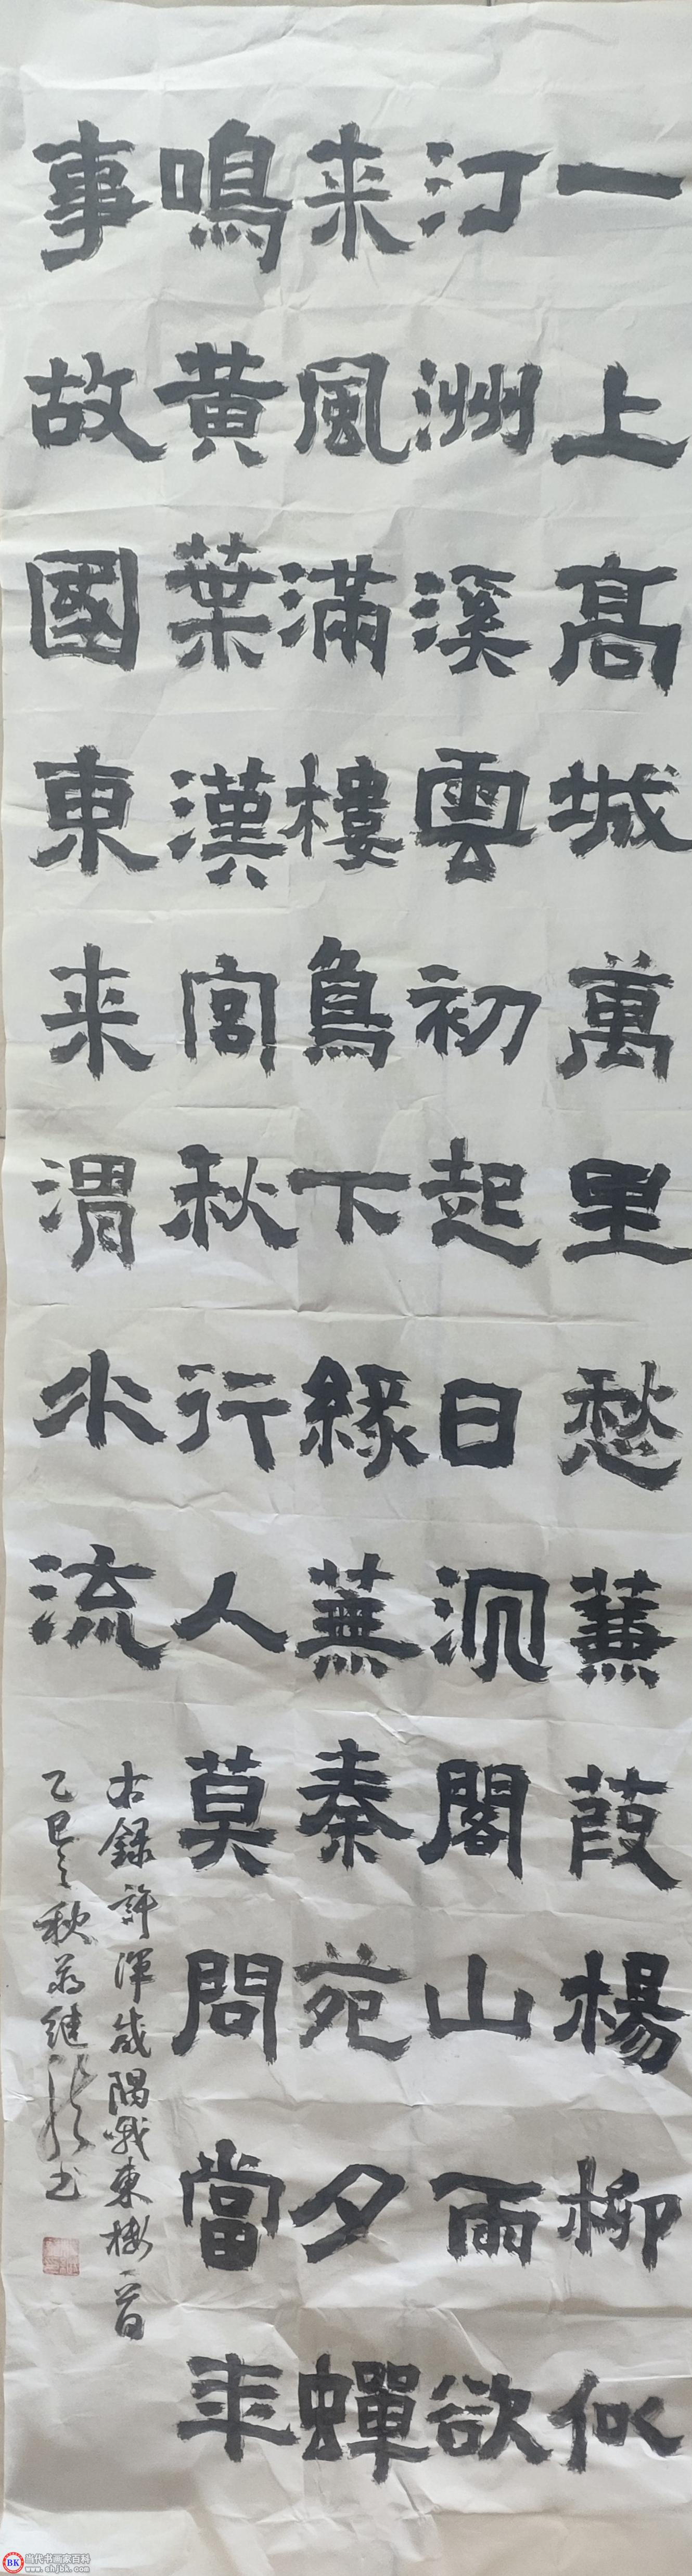 一上髙城萬里愁蒹葭楊柳似
汀洲溪雲初起日沉閣山雨欲
来風滿樓鳥下緑蕪秦苑夕蟬
鳴黄葉漢宮秋行人莫問當年
事故國東来渭水流
右錄許渾咸陽城東樓一首
乙巳之秋 書
BK
当代书画家百科
www.shjbk.com